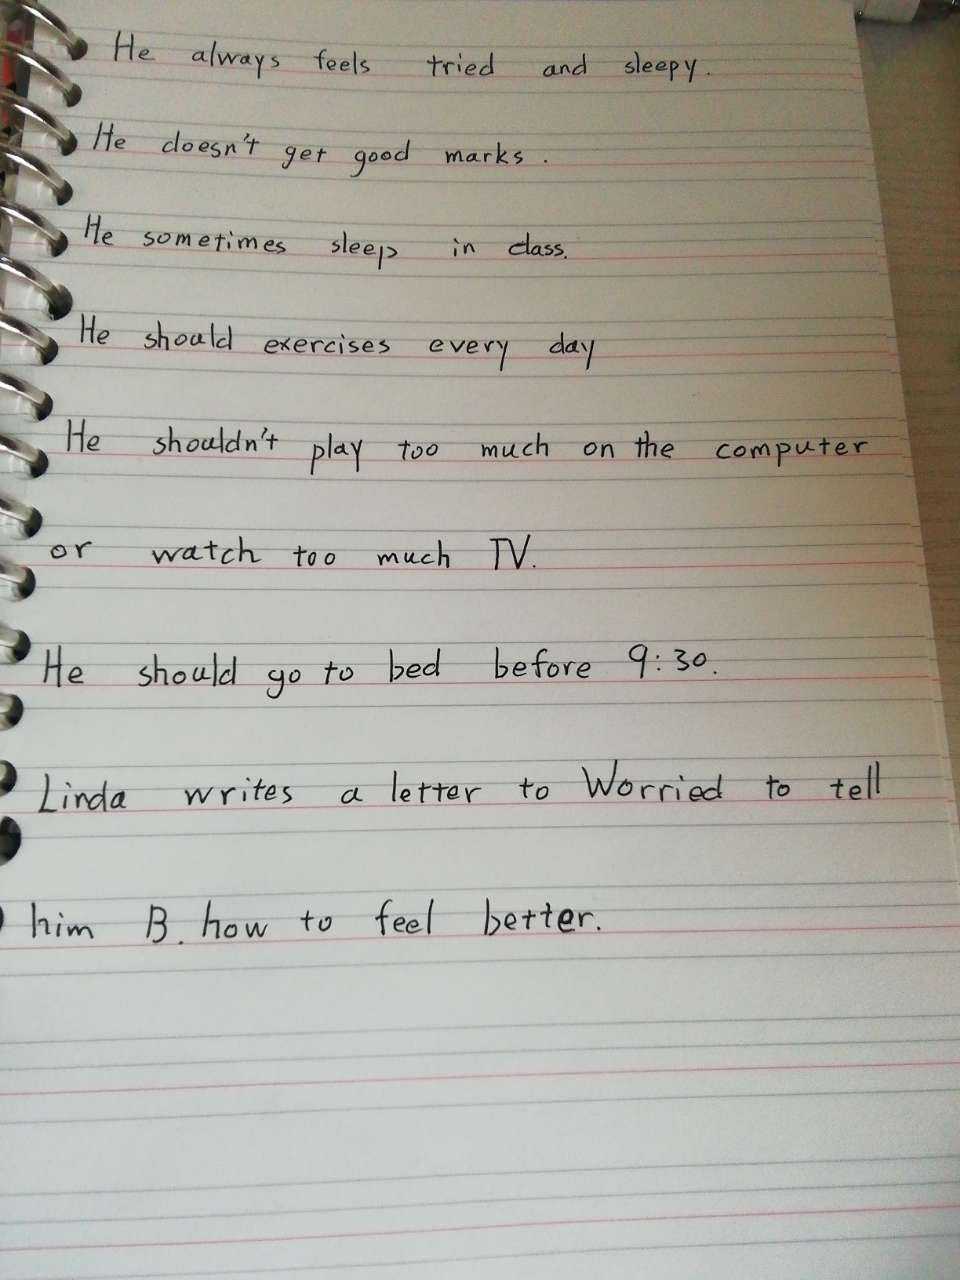 He always feels tried and sleepy.
He doesn't get good marks.
He sometimes sleep in class.
He should exercises every day
He shouldn't play too much on the computer
or watch too much TV.
He should go to bed before 9:30.
Linda writes a letter to Worried to tell
him B. how to feel better.